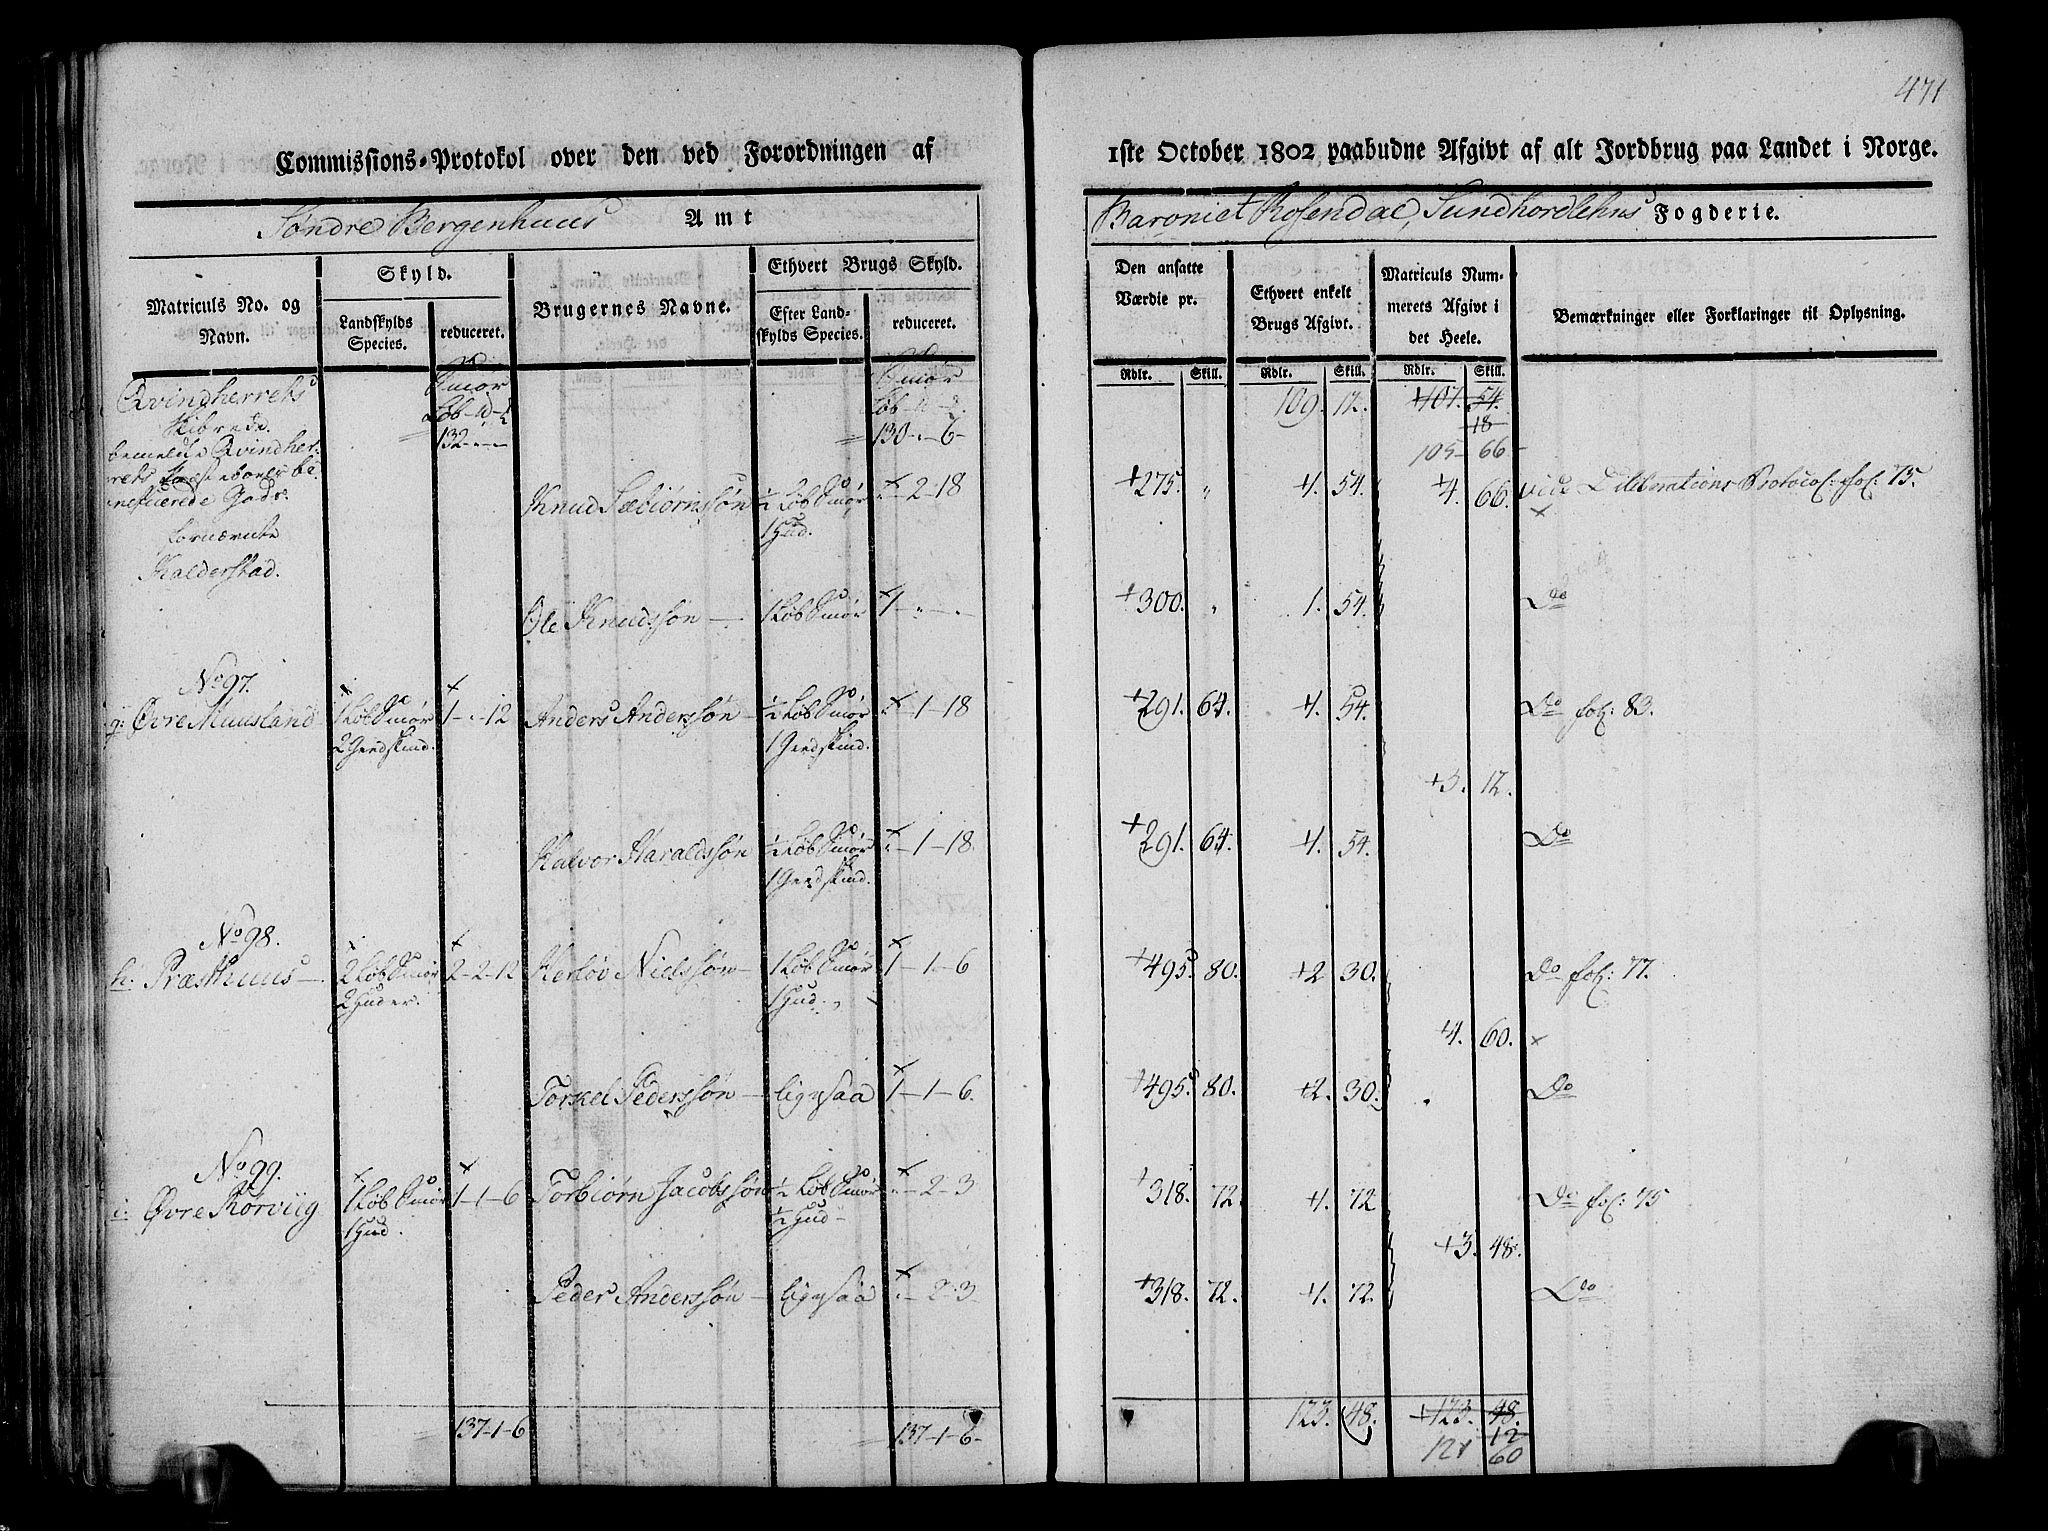 471
Commissions-Protokol over den ved Forordningen af 1ste October 1802 paabudne Afgivt af alt Jordbrug paa Landet i Norge.
Søndre Bergenhuus Amt
Baroniet Rosendal, Sundhordlehns Fogderie.
Matriculs No. og Navn.
Skyld.
Landskylds Species.
reduceret.
Brugernes Navne.
Ethvert Brugs Skyld.
Efter Landskylds Species.
reduceret.
Den ansatte Værdie pr.
Ethvert enkelt Brugs Afgivt.
Matriculs Nummerets Afgivt i det Heele.
Bemærkninger eller Forklaringer til Oplysning.
Rdlr. Skill. Rdlr. Skill. Rdlr. Skill.
Qvindherrets Smør Smør 109. 12. +107. 54.
Skibrede. Løb-  Løb- 18
132-"-" 130-"-6- 105- 66-
bemeldte Qvindher-
rets
Gods.
Knud Sæbiørnssøn ½ Løb Smør "-2-18 +275. " +1. 54. +4. 66. vide Deliberations Protocol: fol: 75.
fornævnte 1 Hud.
Halderstad.
Ole Knudssøn — 1 Løb Smør 1-"-" +300. " 1. 54. Do
No 97.
g: Øvre Muusland 1 Løb Smør 1-"-12 Anders Anderssøn — ½ Løb Smør "-1-18 +291. 64. +1. 54. Do fol: 83.
2 Giedskind. 1 Giedskind.
+3. 12.
Halvor Haraldssøn ½ Løb Smør "-1-18 +291. 64. +1. 54. Do
1 Giedskind.
No 98.
h: Præsthuus — 2 Løb Smør 2-2-12 Herlov Nielssøn — 1 Løb Smør 1-1-6 +495. 80. +2 30. Do fol: 77.
2 Huder. 1 Hud.
+4. 60. x
Torkel Pederssøn — ligesaa 1-1-6. +495. 80. +2. 30. Do
No 99.
i: Øvre Rørviig 1 Løb Smør 1-1-6 Torbiørn Jacobssøn ½ Løb Smør "-2-3 +318. 72. +1. 72 Do fol: 75
1 Hud. ½ Hud-
+3. 48.
Peder Anderssøn — ligesaa "-2-3 +318. 72. +1. 72. Do
137-1-6 137-1-6- 123. 48. +123. 48.
12
121 60